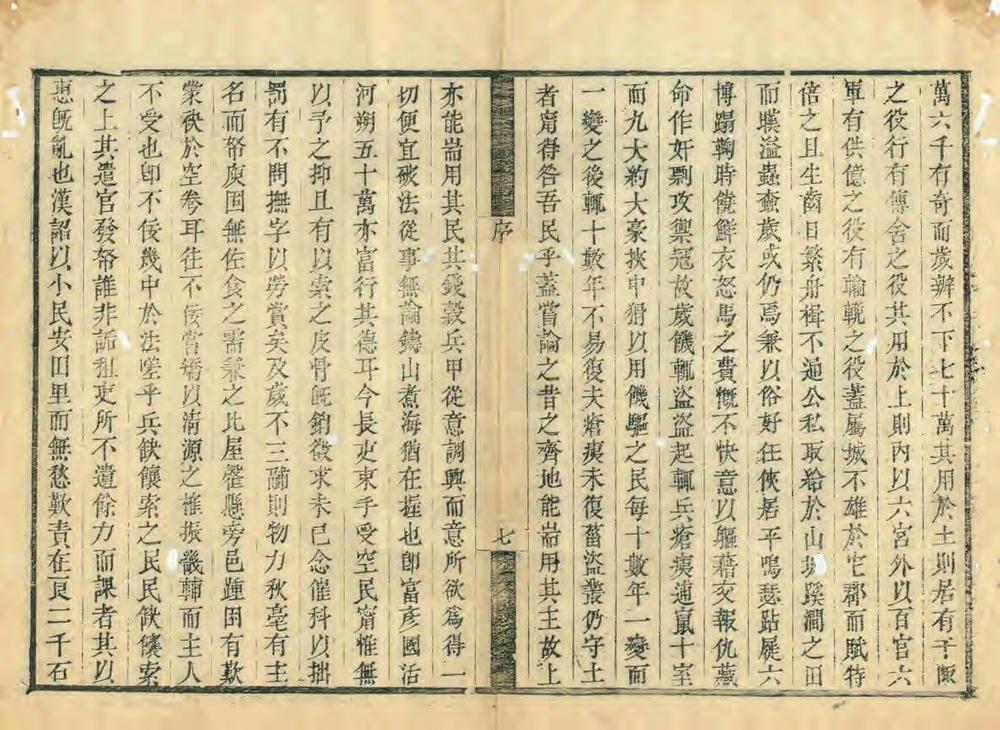 萬六千有奇而歲辦不下七十萬其用於土則居有子
之役行有傳舍之役其用於上則內以六宮外以百官六
軍有供億之役有輸輓之役蓋屬城不雄於它郡而賦特
倍之且生齒日繁舟楫不通公私取給於山 谿澗之田
而暵溢蟲 歲或仍焉兼以俗好任俠居平鳴瑟跕屣六
博蹋鞠時饒鮮衣怒馬之費慨不快意以軀藉交報仇藏
命作奸剽攻禦寇故歲饑輒盜盜起輒兵瘡痍逋竄十室
而九大約大豪挾中猾以用饑驅之民每十數年一變而
一變之後輒十數年不易復夫瘡痍未復萑盜叢仍守土
者甯得咎吾民乎蓋嘗論之昔之齊地能耑用其主故上
序
七
亦能耑用其民其錢穀兵甲從意調興而意所欲為得一
切便宜破法從事無論鑄山煮海猶在握也卽富彥國活
河朔五十萬亦富行其德耳今長吏束手受空民甯惟無
以予之抑且有以索之皮骨旣銷徵求未已念催科以拙
罰有不問撫字以勞賞矣及歲不三 則物力秋毫有主
名而帑庾囯無佐食之需兼之比屋罄懸旁邑踵囯有歎
棠袂於空參耳往不佞嘗 以清源之 振畿輔而主人
不受也卽不佞幾中於法嗟乎兵缺饟索之民民缺饟索
之上其遣官發帑誰非詬租吏所不遺餘力而課者其以
恵旣亂也漢詔以小民安田里而無愁歎責在良二千石